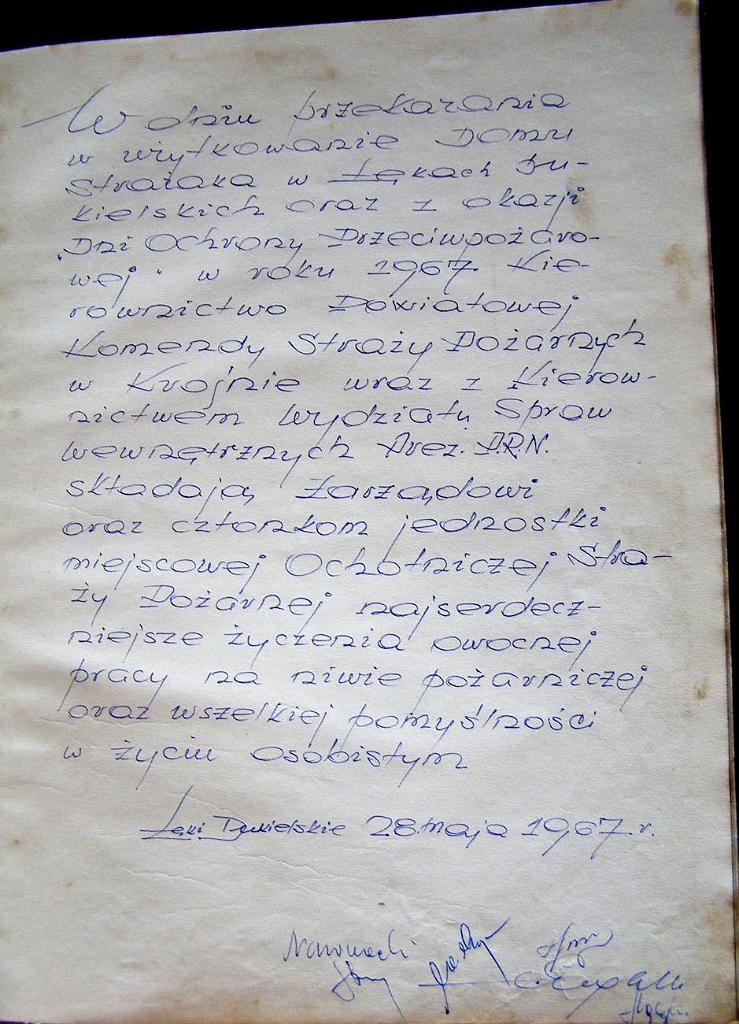 W dniu przekazania
w użytkowanie Domu
Strażaka w Łękach Du-
kielskich oraz z okazji
"Dni Ochrony Przeciwpożaro-
wej" w roku 1967. Kie-
rownictwo Powiatowej
Komendy Straży Pożarnych
w Krośnie wraz z Kierow-
nictwem Wydziału Spraw
Wewnętrznych Prez. P.R.N.
składają Zarządowi
oraz członkom jednostki
miejscowej Ochotniczej Stra-
ży Pożarnej najserdecz-
niejsze życzenia owocnej
pracy na niwie pożarniczej
oraz wszelkiej pomyślności
w życiu osobistym
Łęki Dukielskie 28 maja 1967 r.